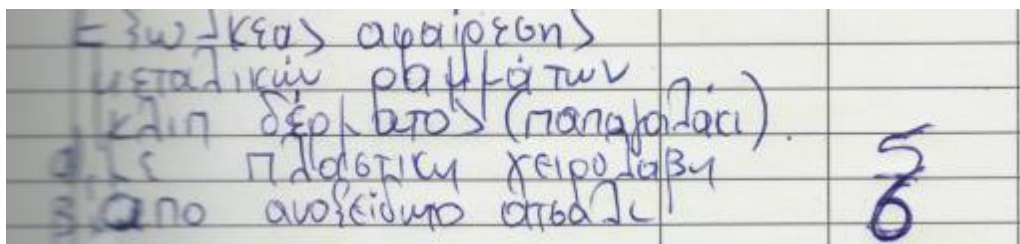 Εξωλκέας αφαίρεσης
μεταλικών ραμμάτων
κλιπ δέρματος (παπαγαλάκι).
α. με πλαστικη χειρολαβη 5
β. απο ανοξείδωτο ατσαλι 6